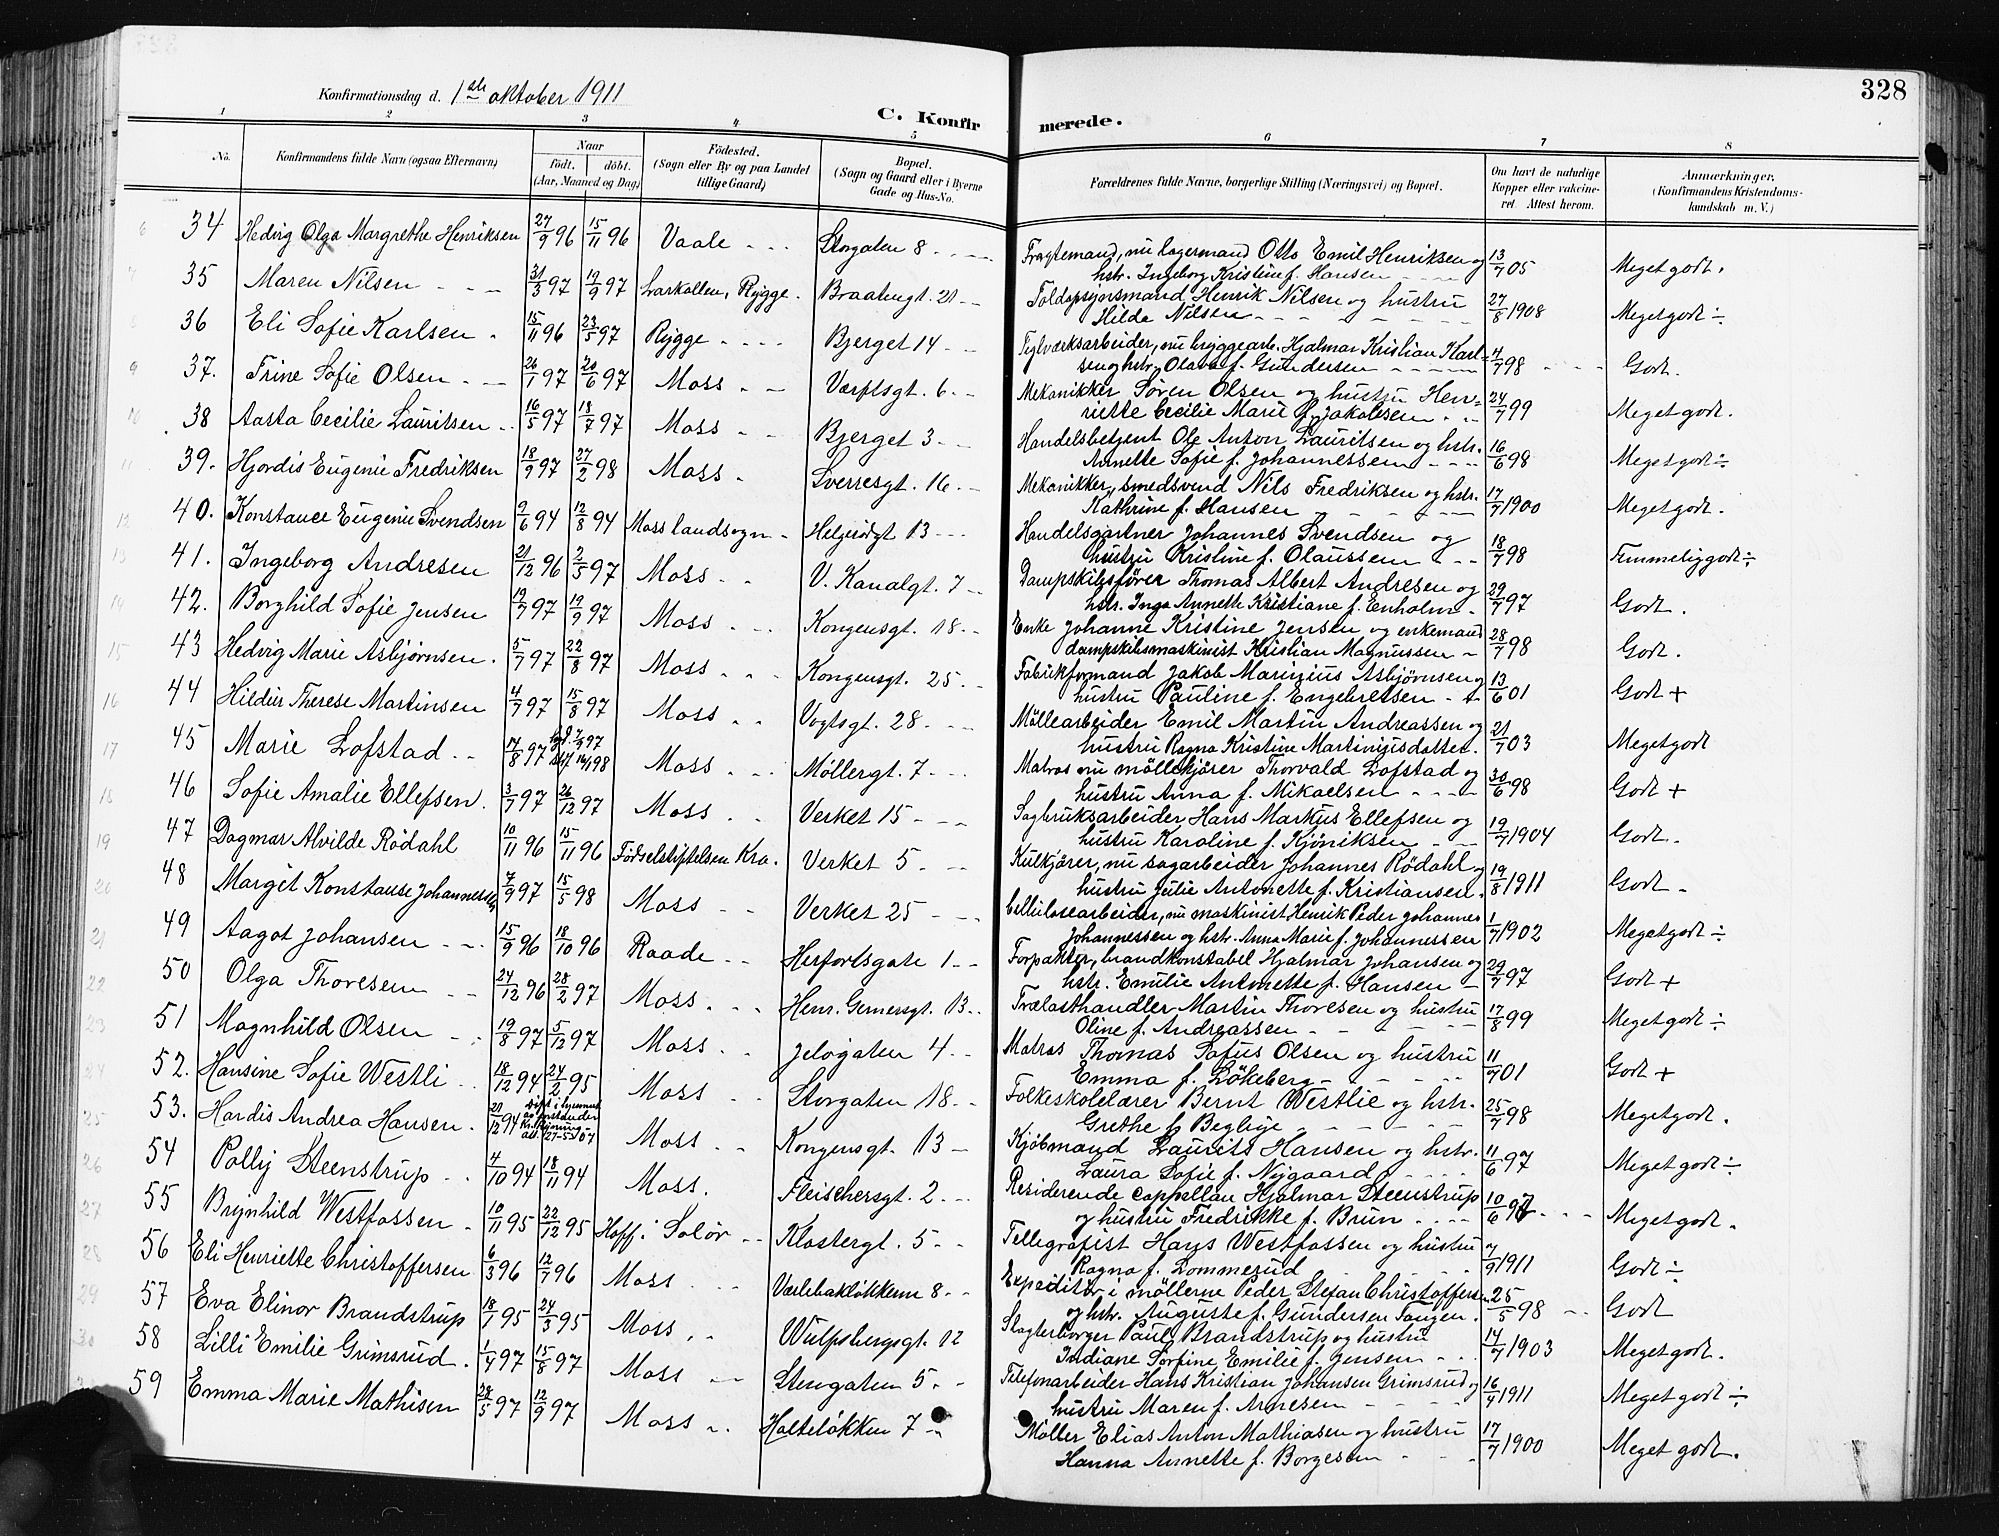 328
Konfirmationsdag d. 1ste oktober 1911
C. Konfirmerede.
1 2 3 4 5 6 7 8
No. Konfirmandens fulde Navn (ogsaa Efternavn) Naar födt. döbt. (Aar, Maaned og Dag) Födested. (Sogn eller By og paa Landet tillige Gaard) Bopæl. (Sogn og Gaard eller i Byerne Gade og Hus-No. Forældrenes fulde Navne, borgerlige Stilling (Næringsvei) og Bopæl. Om havt de naturlige Kopper eller vakcineret. Attest herom. Anmærkninger. (Konfirmandens Kristendomskundskab m. V.)
6 34 Hedvig Olga Margrethe Henriksen 27/9 96 15/11 96 Vaale Storgaten 8 Fragtemand, nu lagermand Otto Emil Henriksen og
hstr. Ingeborg Kristine f. Hansen 13/7 05 Meget godt.
7 35 Maren Nilsen 31/3 97 19/9 97 Larkollen, Rygge. Braatengt. 21 Toldopsynsmand Henrik Nilsen og hustru
Hilda Nilsen 27/8 1908 Meget godt ÷
8 36 Eli Sofie Karlsen 15/11 96 23/5 97 Rygge Bjerget 14 Teglværksarbeider, nu bryggearb. Hjalmar Kristian Karl=
sen og hstr. Olava f. Gundersen 4/7 98 Godt.
9 37. Trine Sofie Olsen 26/1 97 20/6 97 Moss Værftsgt. 6 Mekanikker Sören Olsen og hustru Hen=
riette Cecilie Marie f. Jakobsen 24/7 99 Meget godt.
10 38 Aasta Cecilie Lauritsen 16/5 97 18/7 97 Moss Bjerget 3 Handelsbetjent Ole Anton Lauritsen og hstr.
Annette Sofie f. Johannessen 16/6 98 Meget godt ÷
11 39. Hjordis Eugenie Fredriksen 18/9 97 27/2 98 Moss Sverresgt. 16 Mekanikker, smedsvend Nils Fredriksen og hstr.
Kathrine f. Hansen 17/7 1900 Meget godt.
12 40. Konstance Eugenie Svendsen 9/6 94 12/8 94 Moss landsogn Helgerödgt 13 Handelsgartner Johannes Svendsen og
hustru Kristine f. Olaussen 18/7 98 Temmelig godt ÷
13 41. Ingeborg Andresen 21/12 96 2/5 97 Moss V. Kanalgt. 7 Dampskibsförer Thomas Albert Andresen og
hstr. Inga Annette Kristiane f. Enholm 29/7 97 Godt.
14 42. Borghild Sofie Jensen 19/7 97 19/9 97 Moss Kongensgt. 18 Enke Johanne Kristine Jensen og enkemand
dampskibsmaskinist Kristian Magnussen 28/7 98 Godt.
15 43 Hedvig Marie Asbjörnsen. 5/7 97 22/8 97 Moss Kongensgt. 25 Fabrikformand Jakob Marinius Asbjörnsen og
hustru Pauline f. Engebretsen 13/6 01 Godt +
16 44 Hildur Therese Martinsen 4/7 97 15/8 97 Moss Vogtsgt. 28 Möllearbeider Emil Martin Andreassen og
hustru Ragna Kristine Martiniusdatter 21/7 03 Meget godt
17 45 Marie Lofstad 17/8 97 Moss Möllergt. 7 Matros nu möllekjörer Thorvald Lofstad og
hustru Anna f. Mikaelsen 30/6 98 Godt +
18 46 Sofie Amalie Ellefsen. 3/7 97 26/12 97 Moss Verket 15 Sagbruksarbeider Hans Markus Ellefsen og
hustru Karoline f. Kjöniksen 19/7 1904 Godt.
19 47 Dagmar Alvilde Rödahl 10/11 96 15/11 96 Födselstiftelsen Kra. Verket 5 Kulkjörer, nu sagarbeider Johannes Rödahl og
hustru Julie Antonette f. Kristiansen 19/8 1911 Godt
20 48 Margit Konstanse Johannessen 7/9 97 15/5 98 Moss Verket 25 Cellulosearbeider, nu maskinist Henrik Peder Johannes
Johannessen og hstr. Anna Marie f. Johannessen 1/7 1902 Meget godt ÷
21 49 Aagot Johansen 15/9 96 18/10 96 Raade Herfordsgate 1 Forpakter, brandkonstabel Hjalmar Johansen og
hstr. Emilie Antonette f. Hansen 29/7 97 Godt +
22 50 Olga Thoresen 24/12 96 28/2 97 Moss Henr. Gernersgt. 13 Trælasthandler Martin Thoresen og hustru
Oline f. Andreassen 17/8 99 Meget godt ÷
23 51 Magnhild Olsen 19/8 97 5/12 97 Moss Jelögaten 4 Matros Thomas Sofus Olsen og hustru
Emma f. Lökeberg 11/7 01 Godt +
24 52. Hansine Sofie Westli 18/12 94 24/2 95 Moss Storgaten 18 Folkeskolelærer Bernt Westlie og hstr.
Grethe f. Beglige 25/7 98 Meget godt.
25 53. Hardis Andrea Hansen. 21/12 94 Moss Kongensgt. 13 Kjöbmand Laurits Hansen og hstr.
Laura Sofie f. Nygaard 11/6 97 Meget godt ÷
26 54 Polly Steenstrup 4/10 94 18/11 94 Moss. Fleischersgt. 2 Residerende Cappellan Hjalmar Steenstrup
og hustru Fredrikke f. Brun 10/6 97 Meget godt.
27 55 Brynhild Westfossen 10/11 95 22/12 95 Hoff i Solör Klostergt. 5 Tellegrafist Hans Westfossen og hustru
Ragna f. Lommerud 7/9 1911 Godt ÷
28 56 Eli Henriette Christoffersen 6/3 96 12/7 96 Moss Varlebaklökken 8 Expeditör i möllerne Peder Stefan Christoffersen
og hstr. Auguste f. Gundersen Tangen. 25/5 98 Godt
29 57 Eva Elinor Brandstrup 18/1 95 24/3 95 Moss Wulfsbergsgt. 12 Slagterborger Paul Brandstrup og hustru
Indiane Sorfine Emilie f. Jensen 14/7 1903 Meget godt.
30 58 Lilli Emilie Grimsrud. 1/4 97 15/8 97 Moss Stengaten 5 Telefonarbeider Hans Kristian Johansen Grimsrud og
hustru Maren f. Arnesen 16/4 1911 Meget godt ÷
59 Emma Marie Mathisen 28/5 97 12/9 97 Moss Holtelökken 7 Möller Elias Anton Mathiasen og hustru
Hanna Annette f. Borgesen 17/7 1900 Meget godt.